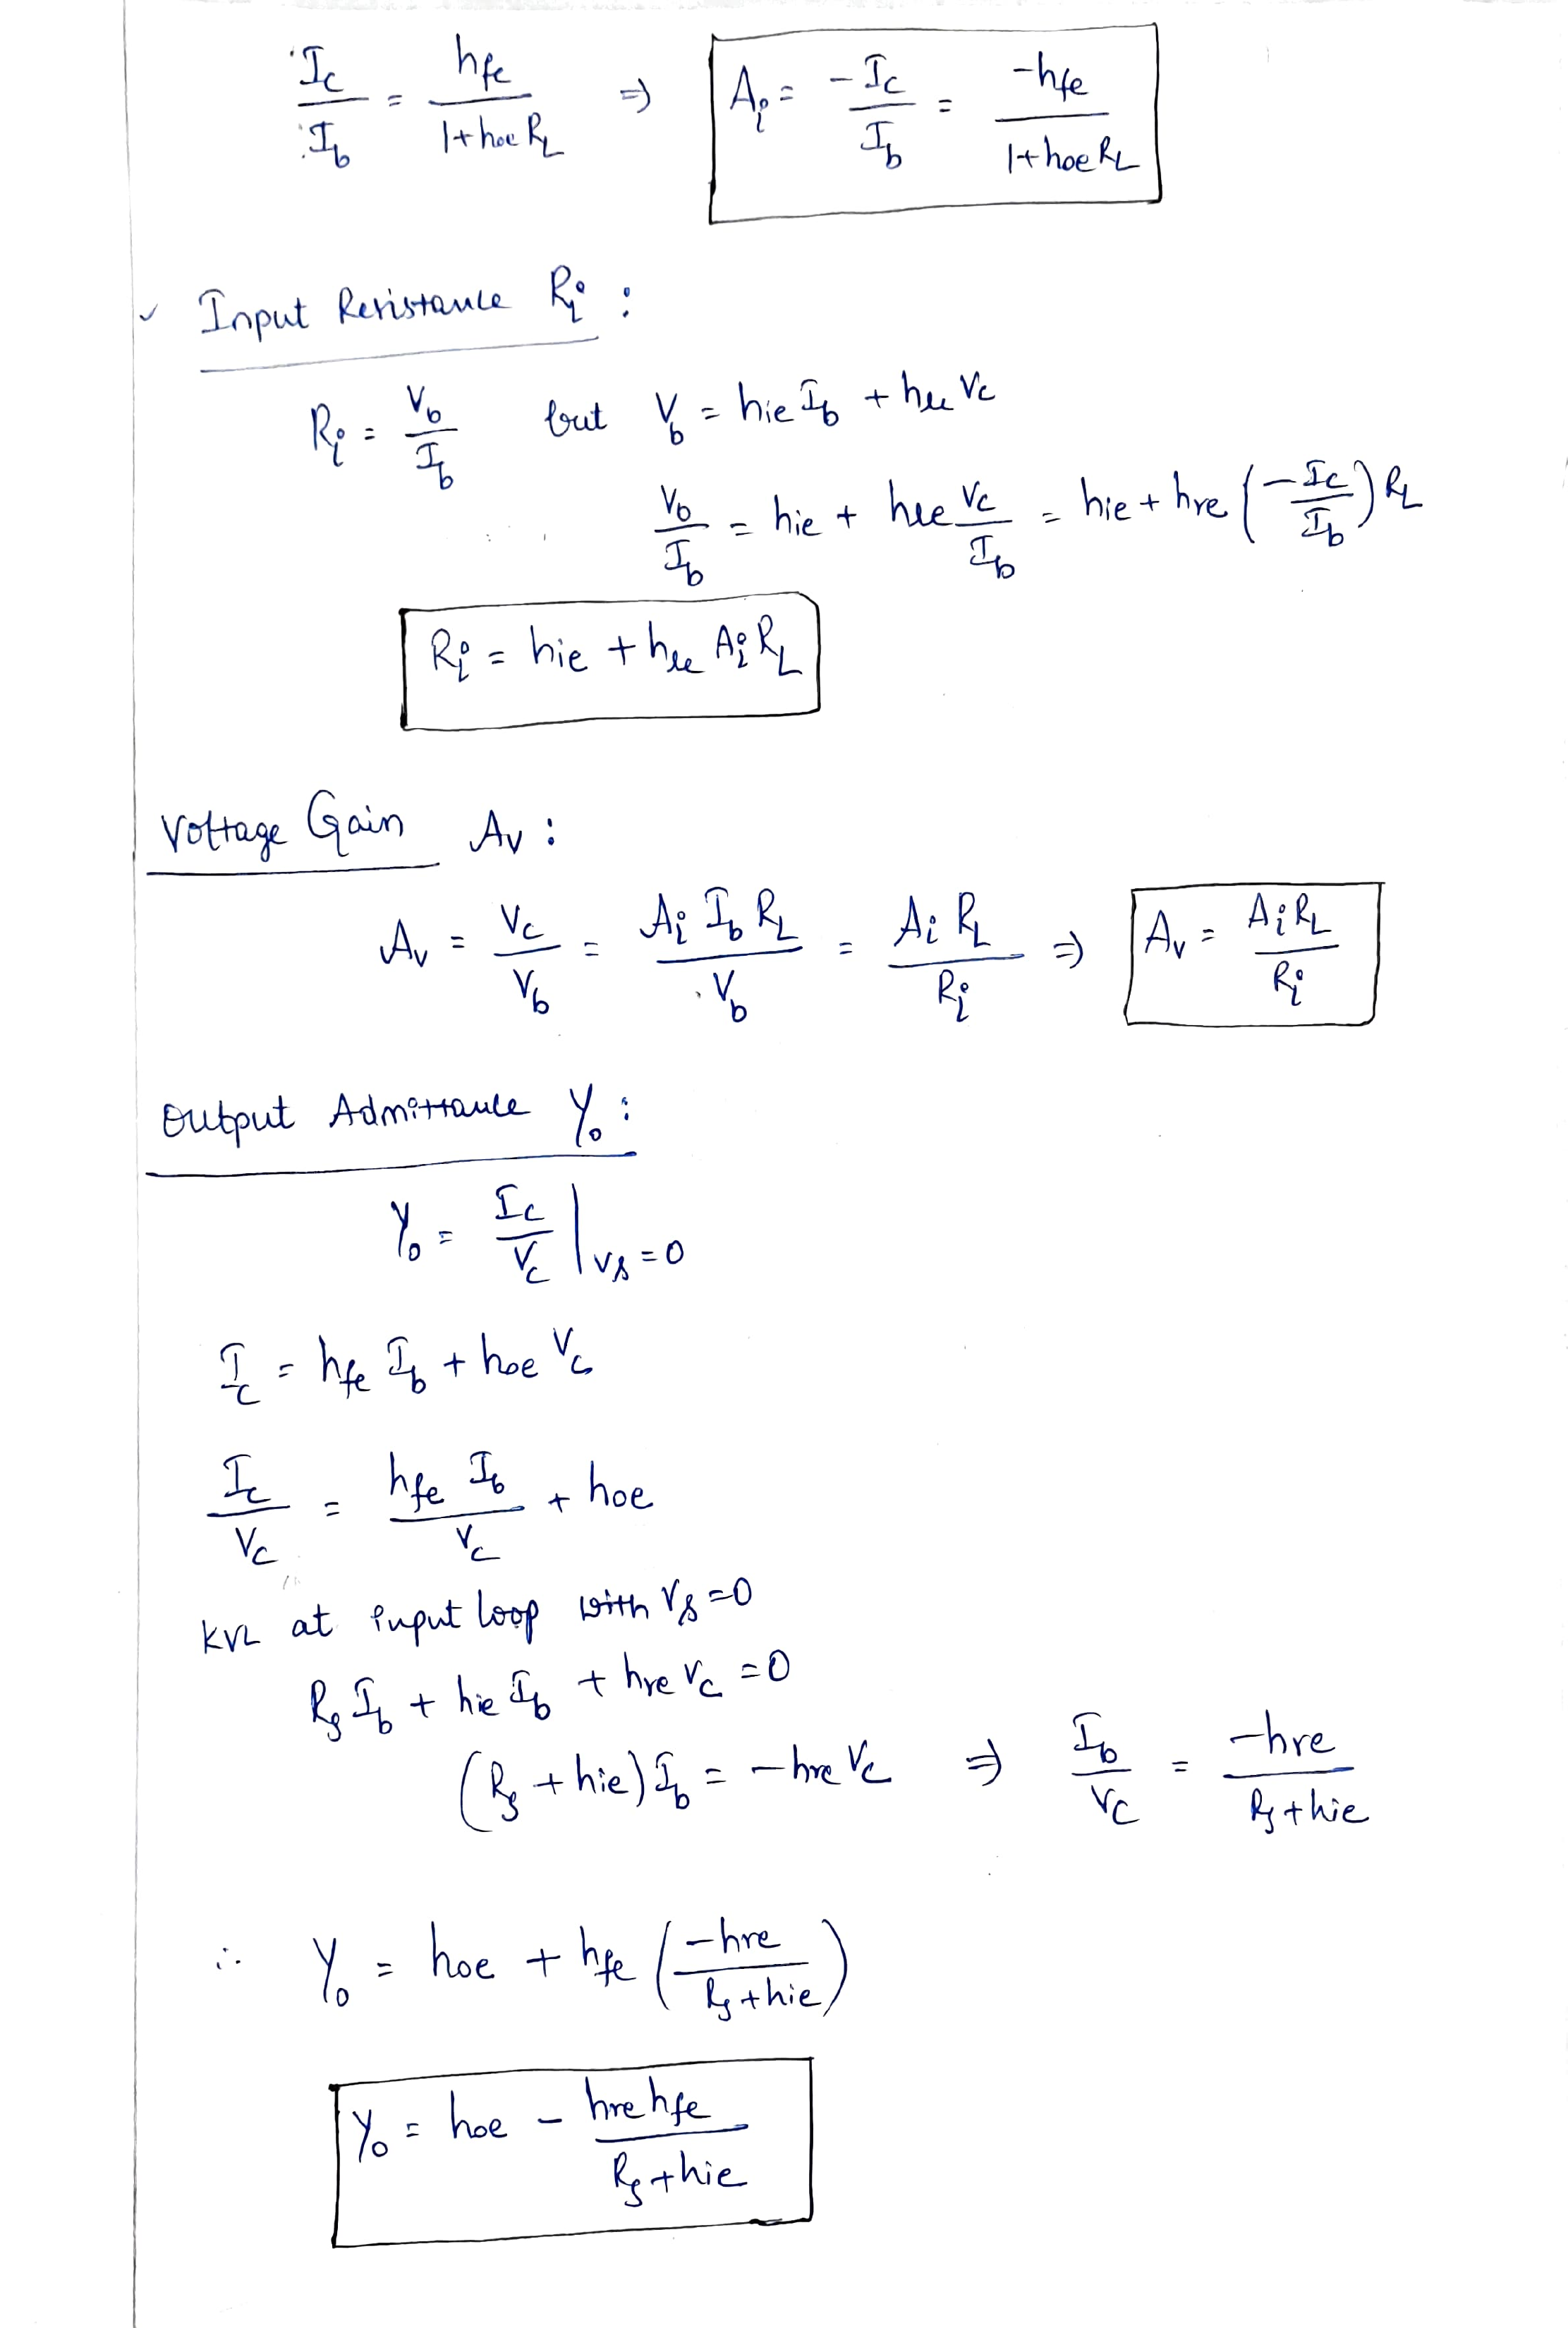 Ic/Ib = hfe/(1+hoe RL) ⇒ Ai = -Ic/Ib = -hfe/(1+hoe RL)
Input Resistance Ri :
Ri = Vb/Ib but Vb = hie Ib + hre Vc
Vb/Ib = hie + hre Vc/Ib = hie + hre (-Ic/Ib) RL
Ri = hie + hre Ai RL
Voltage Gain Av :
Av = Vc/Vb = Ai Ib RL/Vb = Ai RL/Ri ⇒ Av = Ai RL/Ri
Output Admittance Yo :
Yo = Ic/Vc | Vs = 0
Ic = hfe Ib + hoe Vc
Ic/Vc = hfe Ib/Vc + hoe
KVL at input loop with Vs = 0
Rs Ib + hie Ib + hre Vc = 0
(Rs + hie) Ib = -hre Vc ⇒ Ib/Vc = -hre/(Rs + hie)
∴ Yo = hoe + hfe (-hre/(Rs + hie))
Yo = hoe - hre hfe/(Rs + hie)